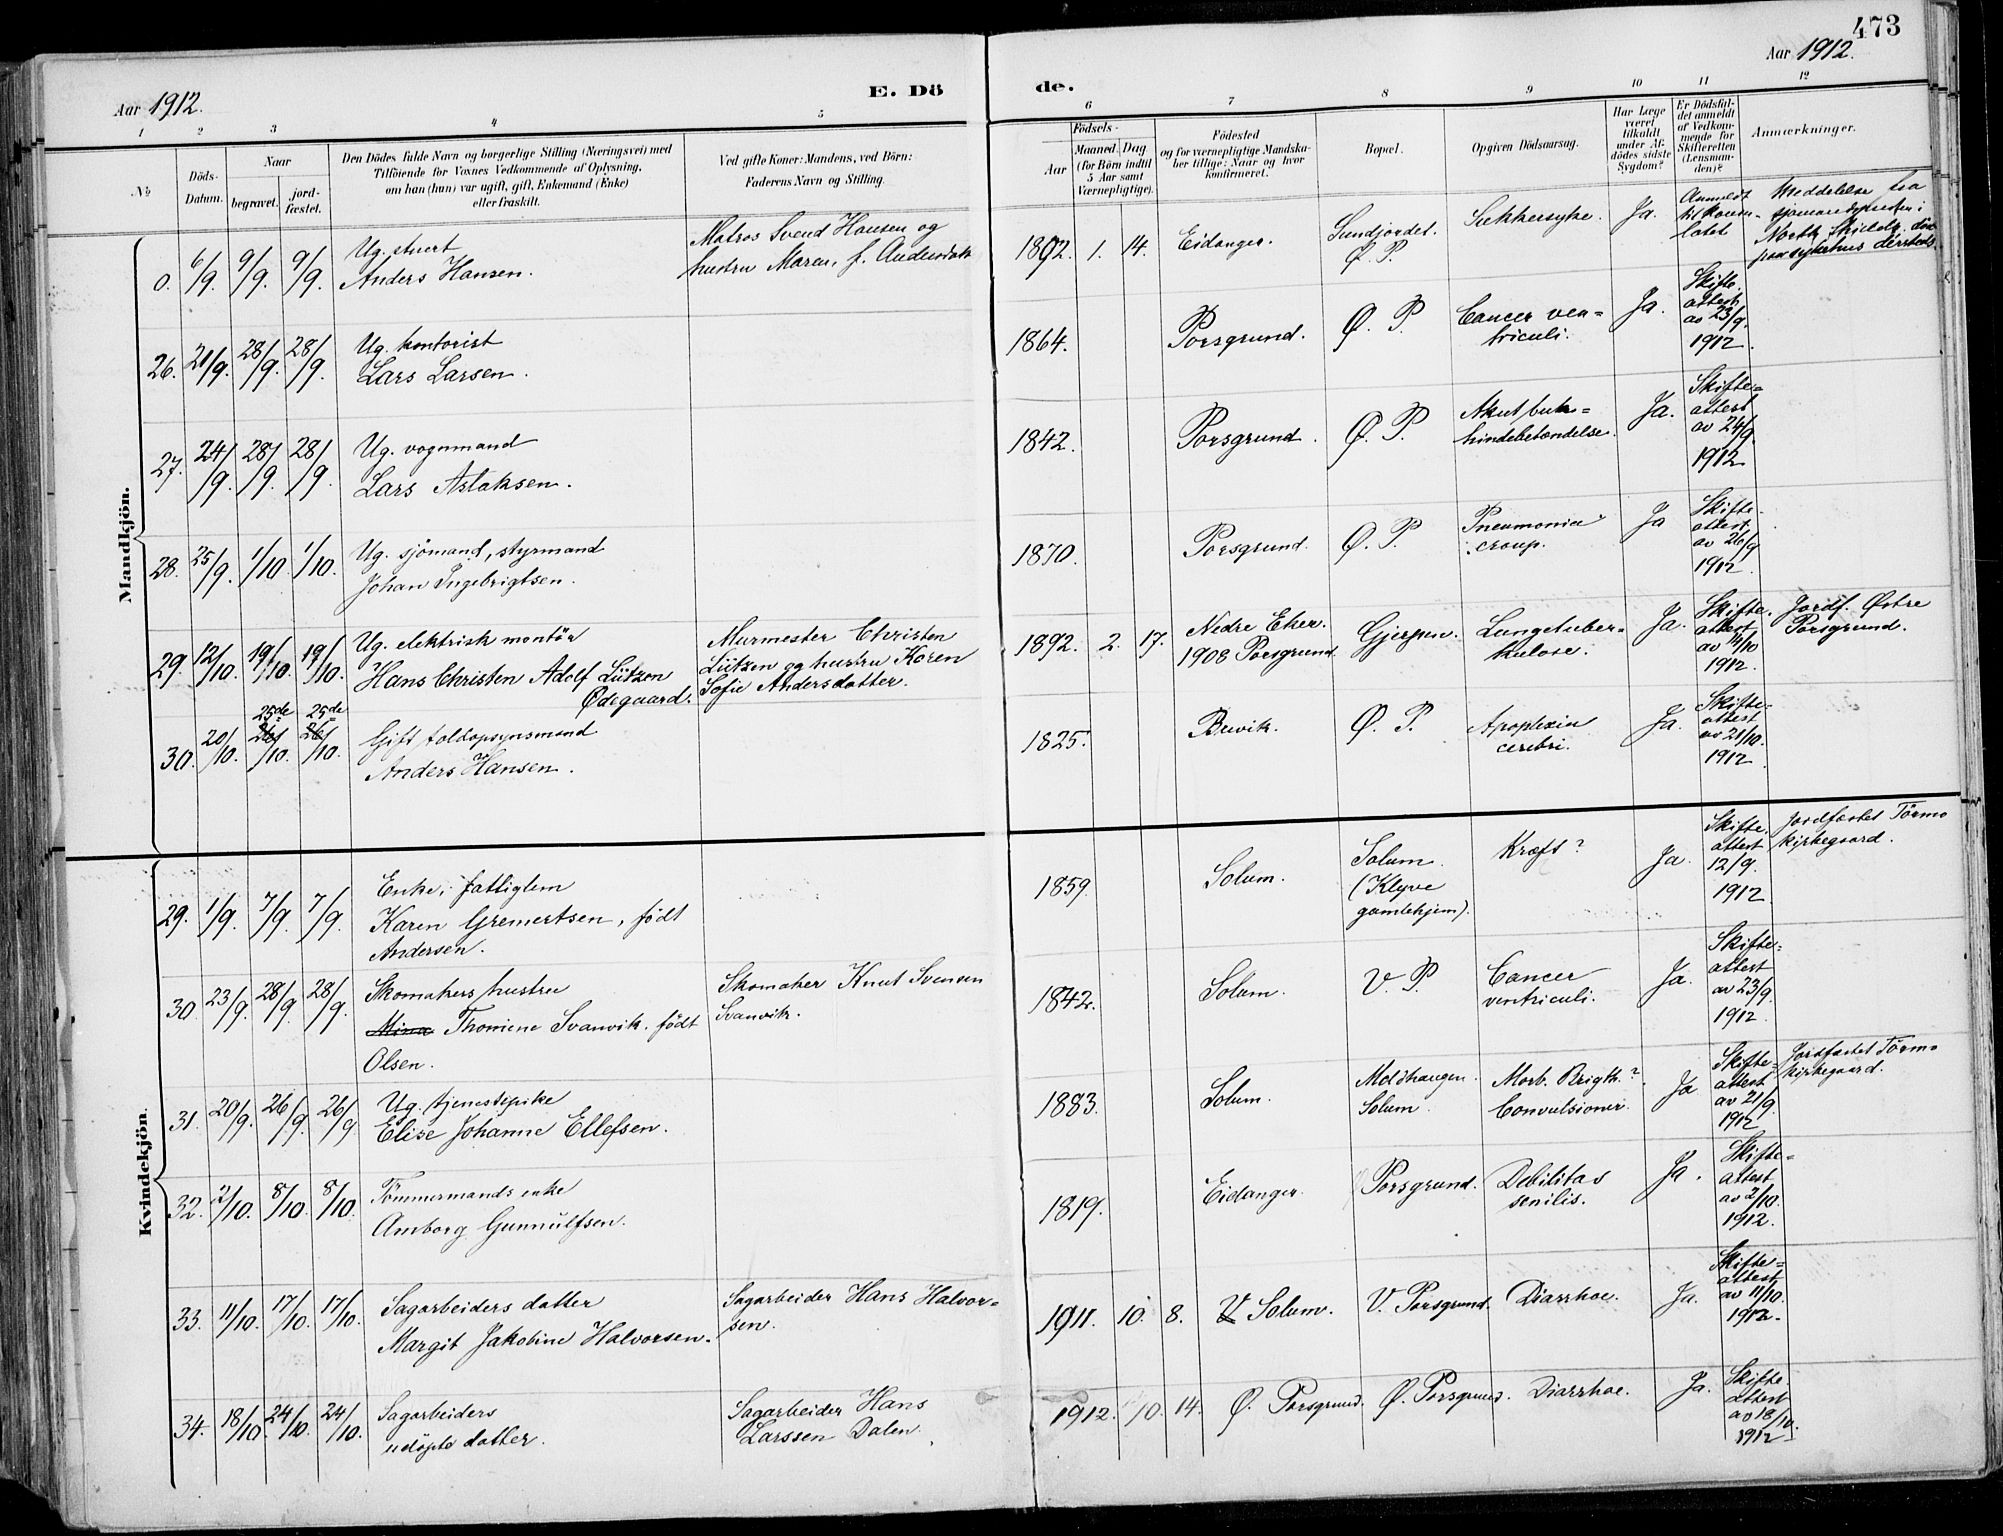 473
Aar 1912.
E. Dö
de.
Aar 1912.
1 2 3 4 5
6 7 8 9 10 11 12
No
Döds-
Datum.
Naar
begravet.
jord-
fæstet.
Den Dödes fulde Navn og borgerlige Stilling (Næringsvei) med
Tilföiende for Voxnes Vedkommende af Oplysning,
om han (hun) var ugift, gift, Enkemand (Enke)
eller fraskilt.
Ved gifte Koner: Mandens, ved Börn:
Faderens Navn og Stilling.
Födsels-
Aar
Maaned. Dag
(for Börn indtil
5 Aar samt
Værnepligtige).
Födested
og for værnepligtige Mandska-
ber tillige: Naar og hvor
konfirmeret.
Bopæl.
Opgiven Dödsaarsag.
Har Læge
været
tilkaldt
under Af-
dödes sidste
Sygdom?
Er Dödsfal-
det anmeldt
af Vedkom-
mende for
Skifteretten
(Lensman-
den)?
Anmærkninger.
Mandkjön.
0. 6/9. 9/9. 9/9.
Ug. stuert
Anders Hansen.
Matros Svend Hansen og
hustru Maren, f. Andersdatr
1892. 1. 14. Eidanger.
Sundjordet.
Ø. P.
Sukkersyke. Ja.
Anmeldt
til konsu-
latet
Meddelelse fra
sjømandspresten i
North Shields. död
paa sykehus dersteds.
26. 21/9. 28/9. 28/9.
Ug. kontorist
Lars Larsen.
1864. Porsgrund. Ø. P.
Cancer ven=
triculi.
Ja.
Skifte-
attest
av 23/9.
1912.
27. 24/9. 28/9. 28/9.
Ug. vognmand
Lars Aslaksen.
1842. Porsgrund. Ø. P.
Akut buk=
hindebetændelse.
Ja.
Skifte=
attest
av 24/9
1912.
28. 25/9. 1/10. 1/10.
Ug. sjömand, styrmand
Johan Ingebrigtsen.
1870. Porsgrund. Ø. P.
Pneumonia
croup.
Ja
Skifte-
attest
av 26/9
1912.
29. 12/10. 19/10. 19/10.
Ug. elektrisk montör
Hans Christen Adolf Lützen
Ødegaard.
Murmester Christen
Lützen og hustru Karen
Sofie Andersdatter.
1892. 2. 17.
Nedre Eker.
1908 Porsgrund.
Gjerpen.
Lungetuber=
kulose.
Ja.
Skifte-
attest
av 14/10
1912.
Jordf. Østre
Porsgrund.
30. 20/10.
25de 25de
26/10. 26/10.
Gift toldopsynsmand
Anders Hansen.
1825. Brevik. Ø. P.
Apoplexia
cerebri.
Ja.
Skifte-
attest
av 21/10.
1912
Kvindekjön.
29. 1/9. 7/9. 7/9.
Enke, fattiglem
Karen Gremertsen, födt
Andersen.
1859. Solum.
Solum.
(Klyve
gamlehjem).
Kræft? Ja.
Skifte-
attest
12/9.
1912.
Jordfæstet Törmo
kirkegaard.
30. 23/9. 28/9. 28/9.
Skomakers hustru
Mina Thomine Svanvik, födt
Olsen.
Skomaker Knut Svensen
Svanvik.
1842. Solum. V. P.
Cancer
ventriculi.
Ja.
Skifte=
attest
av 23/9.
1912.
31. 20/9. 26/9. 26/9
Ug. tjenestepike
Elise Johanne Ellefsen.
1883. Solum.
Moldhaugen.
Solum.
Morb. Brigth.?
Convulsioner.
Ja
Skifte-
attest
av 21/9.
1912
Jordfæstet Törmo
kirkegaard.
32. 2/10. 8/10. 8/10.
Tömmermands enke
Amborg Gunnulfsen.
1819. Eidanger. Porsgrund.
Debilitas
senilis.
Ja.
Skifte=
attest
av 2/10.
1912.
33. 11/10. 17/10. 17/10.
Sagarbeiders datter
Margit Jakobine Halvorsen.
Sagarbeider Hans Halvor=
sen.
1911. 10. 8. V Solum. V. Porsgrund. Diarrhoe. Ja.
Skifte=
attest
av 11/10.
1912.
34. 18/10. 24/10. 24/10.
Sagarbeiders
udöpte datter.
Sagarbeider Hans
Larssen Dalen.
1912. 10. 14. Ø. Porsgrund. Ø. Porsgrund. Diarrhoe. Ja.
Skifte
attest
av 18/10.
1912